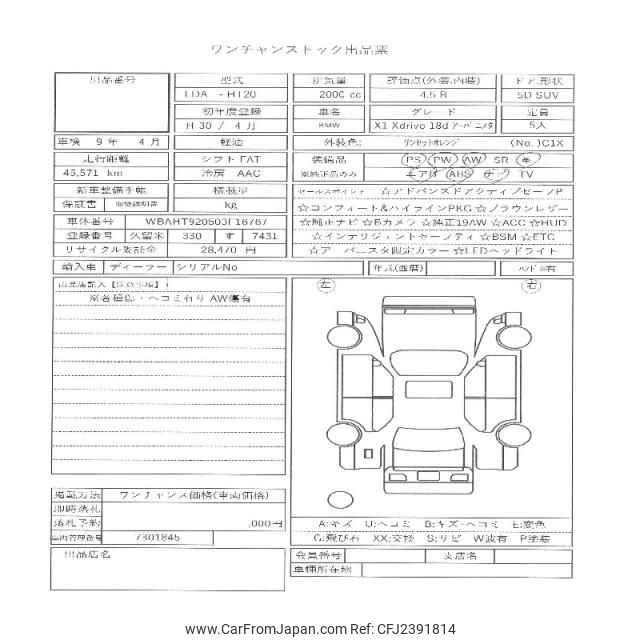 ワンチャンストック出品票
出品番号 型式 排気量 評価点(外装,内装) ドア.形状
LDA - HT20 2000 cc 4.5 B 5D SUV
初年度登録 車名 グレード 定員
H 30 / 4 月 BMW X1 Xdrivo 18d 5人
車検 9 年 4 月 軽油 外装色: サンセットオレンジ (No. )C1X
走行距離 シフト FAT 装備品 PS PW AW SR 革
45,571 km 冷房 AAC ※純正品のみ ABS TV
新車整備手帳 積載量 セールスポイント ☆アドバンスドアクティブセーフP
保証書 取扱説明書 kg ☆コンフォート&ハイラインPKG ☆ブラウンレザー
車体番号 WBAHT920503F16767 ☆純正ナビ ☆Bカメラ ☆純正19AW ☆ACC ☆HUD
登録番号 久留米 330 す 7431 ☆インテリジェントセーフティ ☆BSM ☆ETC
リサイクル預託金 28,470 円 ☆ア バニスタ限定カラー ☆LEDヘッドライト
輸入車 ディーラー シリアルNo 年式(西暦) ハンドル右
出品店記入【注意事項】
左 右
※各種傷・ヘコミ有り AW傷有
掲載方法 ワンチャンス価格(車両価格)
即時落札
落札予約 ,000円
A:キズ U:ヘコミ B:キズ・ヘコミ E:変色
車両管理番号 7301845
G:飛び石 XX:交換 S:サビ W波有 P塗装
出品店名 会員番号 支店名
車輌所在地
www.CarFromJapan.com Ref: CFJ2391814